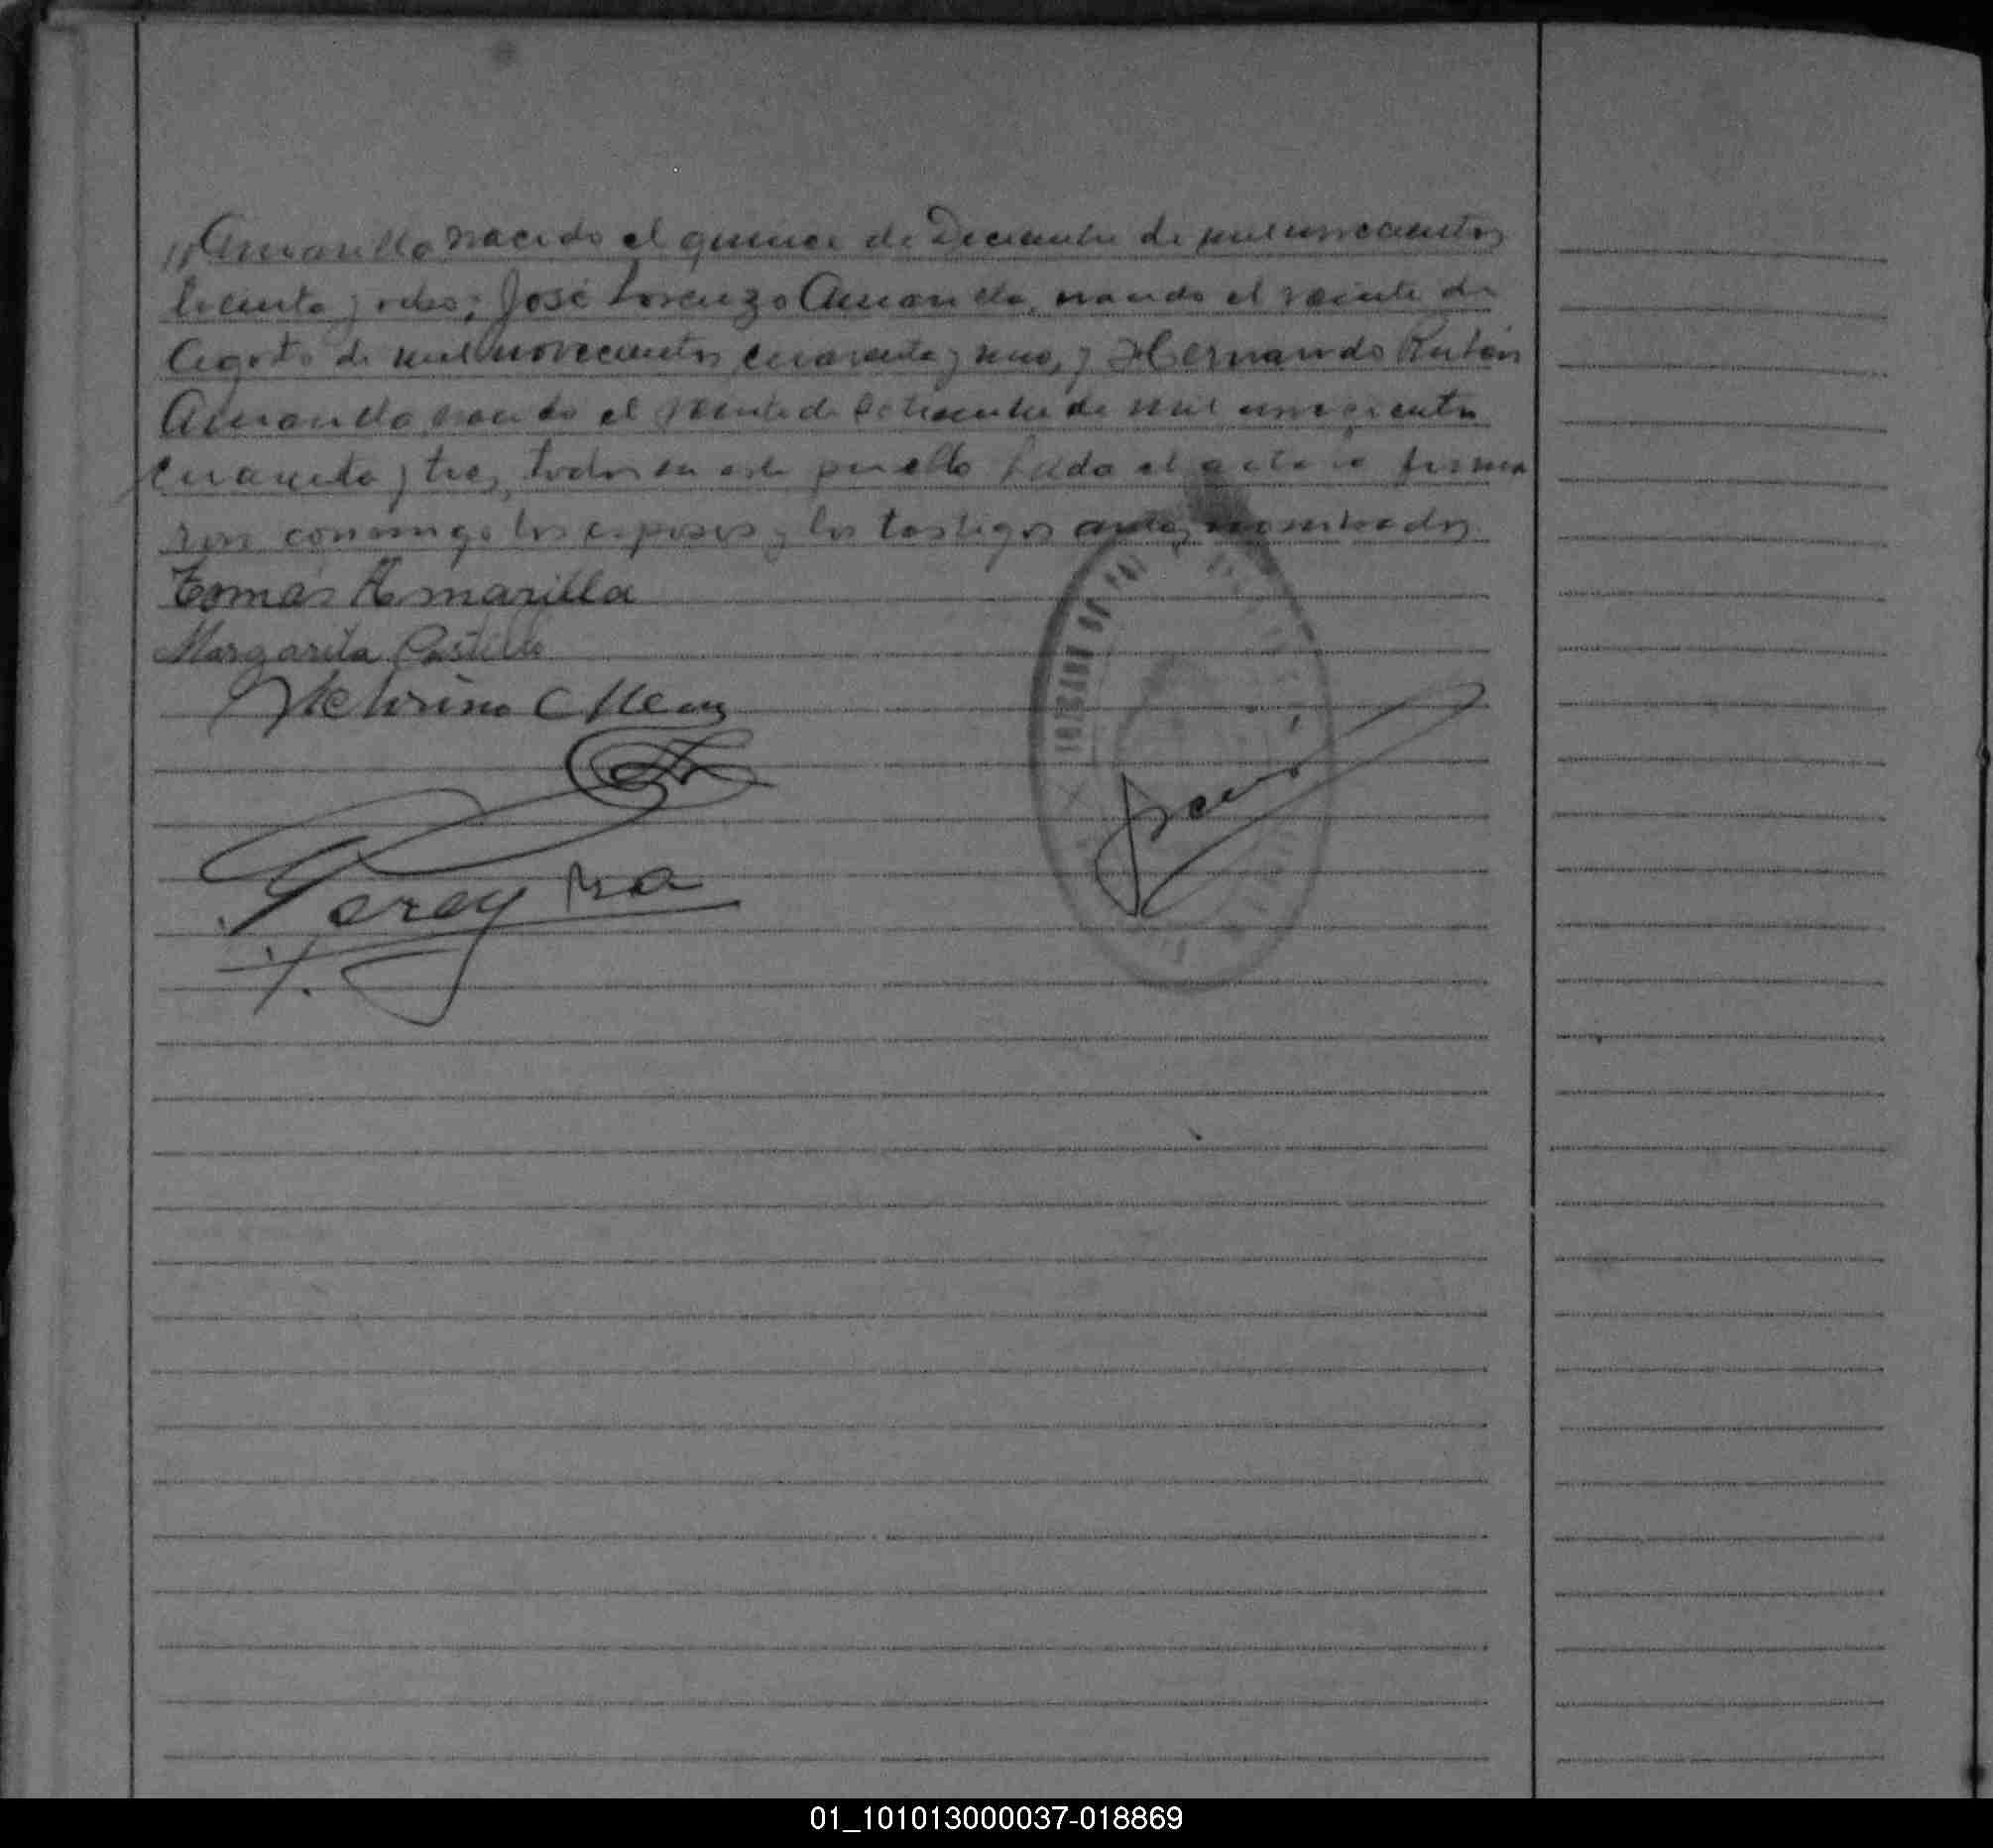 " Amarilla nacido el quince de Diciembre de mil novecientos
treinta y ocho; José Lorenzo Amarilla, nacido el veinte de
Agosto de mil novecientos cuarenta y uno, y Hernando Rubén
Amarilla nacido el veinte de Setiembre de mil novecientos
cuarenta y tres, todos en este pueblo Leida el acta la firma
ron conmigo los esposos y los testigos antes nombrados
Tomás Amarilla
Margarita Castillo
Pereyra
01_101013000037-018869